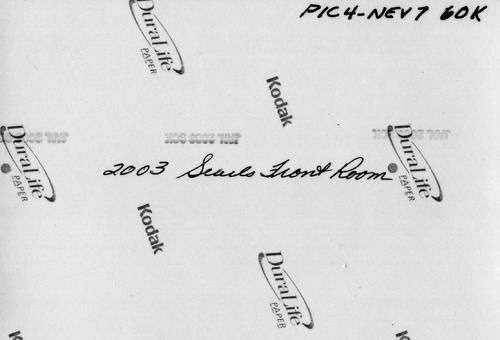 PIC4-NEV7 60K
DuraLife
PAPER
Kodak
DuraLife
PAPER
DuraLife
PAPER
2003 Searls Front Room
Kodak
DuraLife
PAPER
K
K